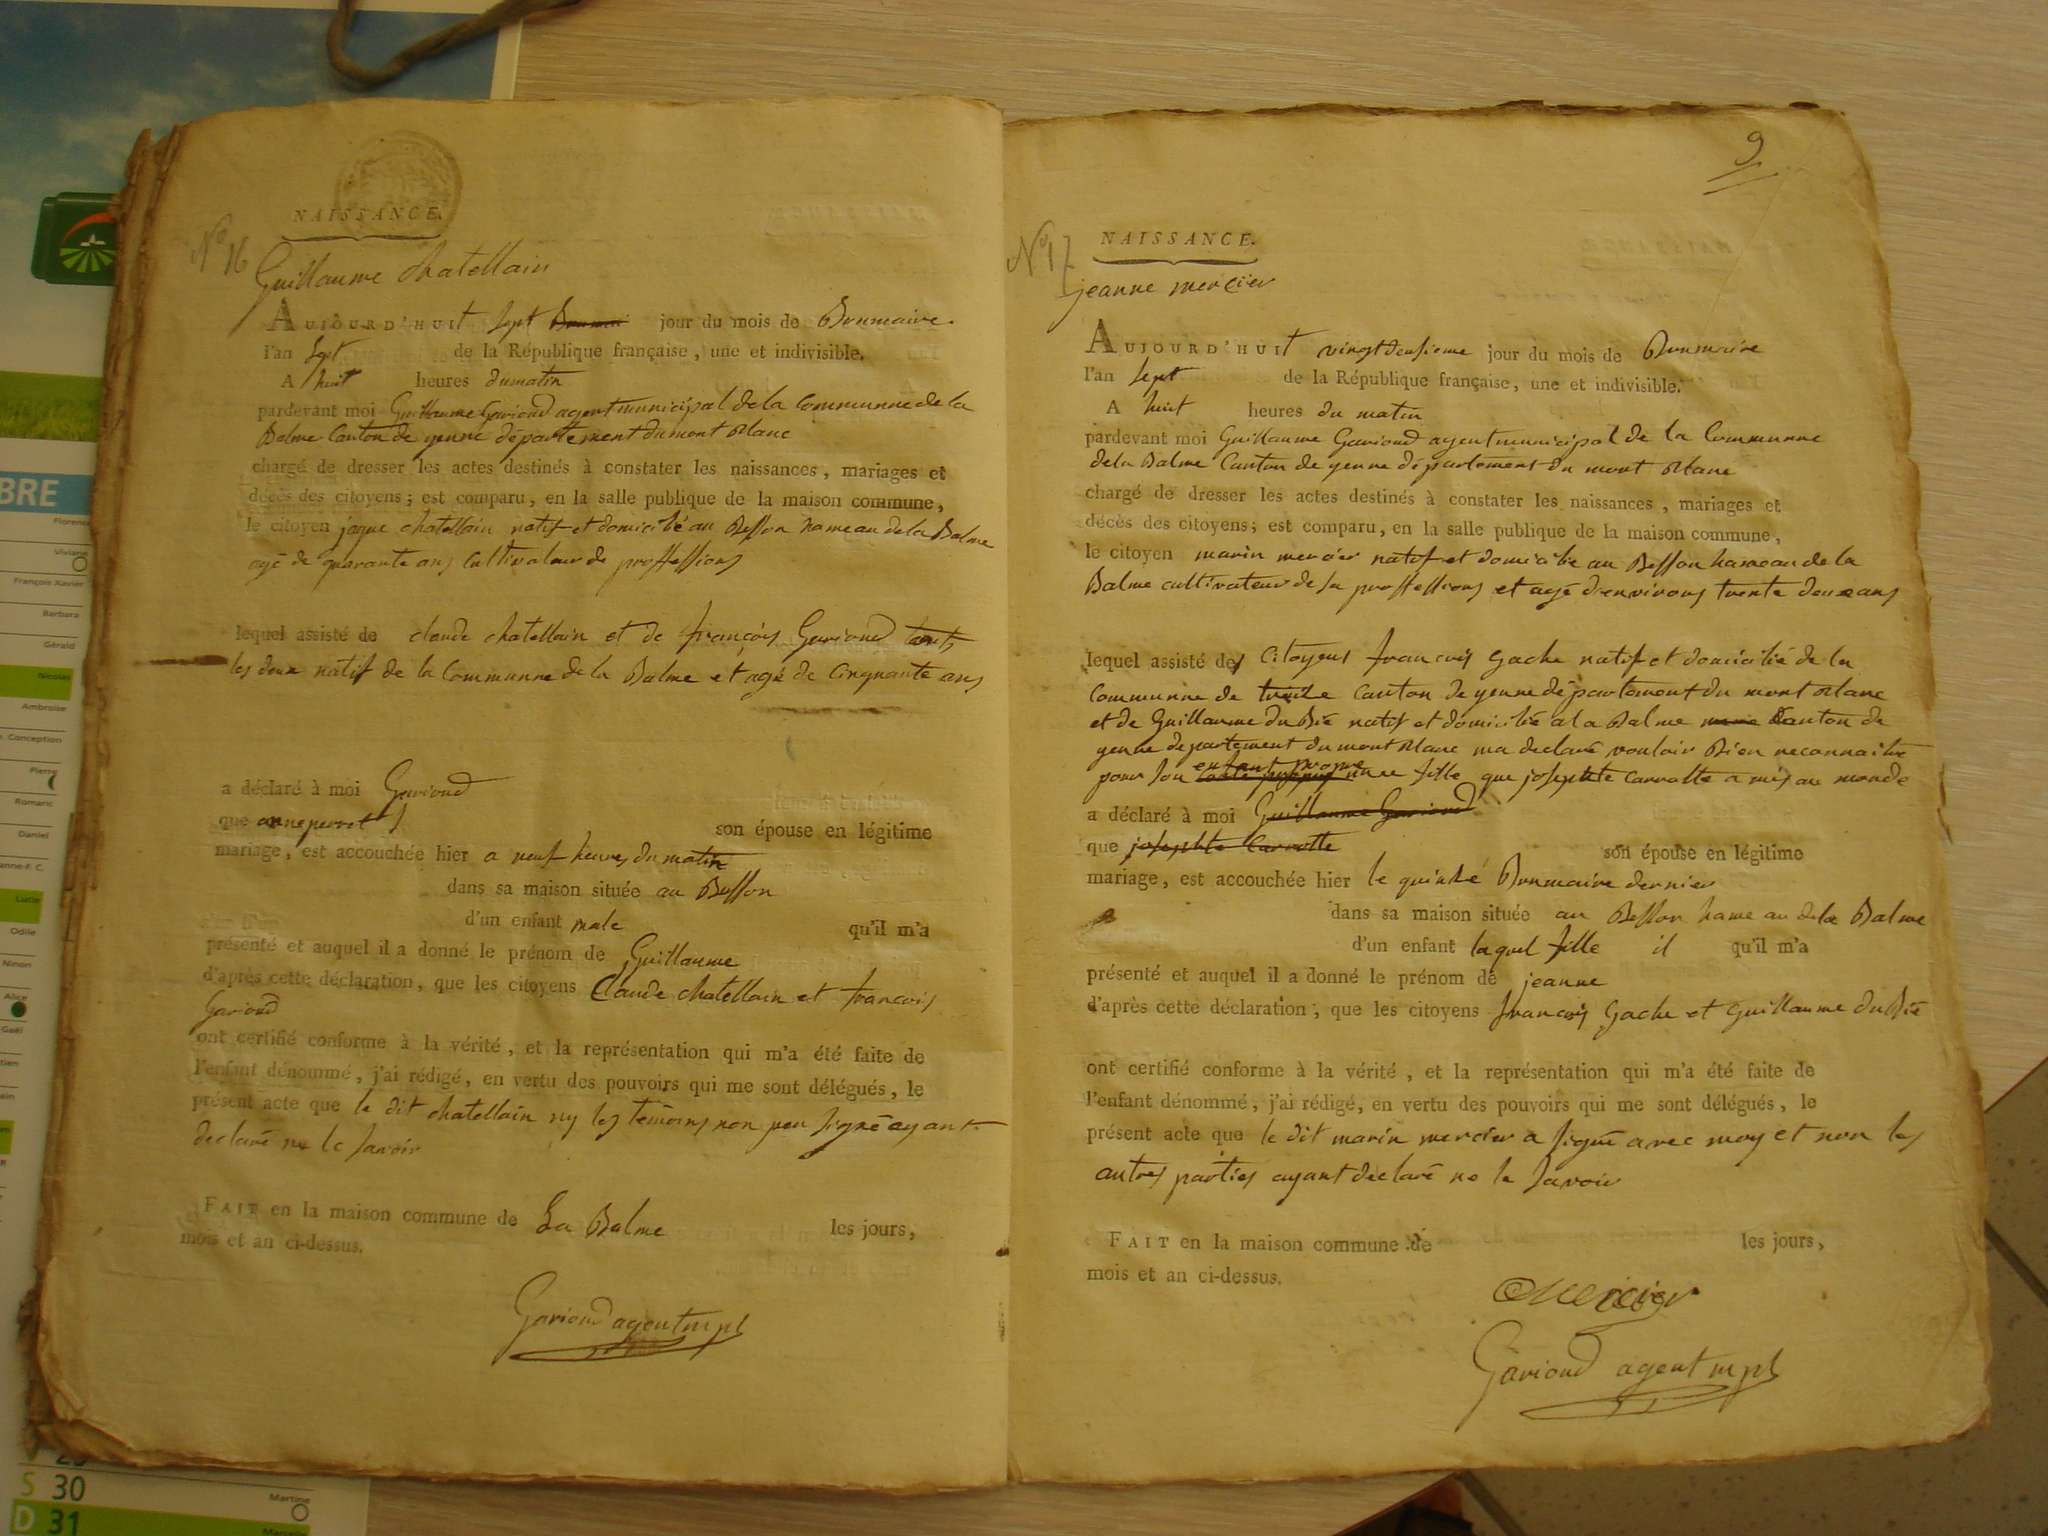 NAISSANCE.
N° 16
Guillaume chatellain
AUJOURD'HUIt sept Brumai jour du mois de Brumaire.
l'an sept de la République française, une et indivisible.
A huit heures du matin
pardevant moi Guillaume Gavioud agent municipal de la Communne de la
Balme Canton de yenne département du mont Blanc
chargé de dresser les actes destinés à constater les naissances, mariages et
décès des citoyens; est comparu, en la salle publique de la maison commune,
le citoyen jaque chatellain natif et domicilié au Besson hameau de la Balme
agé de quarante ans Cultivateur de proffessions
lequel assisté de claude chatellain et de françois Gavioud tout
les deux natif de la Communne de la Balme et agé de Cinquante ans
a déclaré à moi Gavioud
que anne perret son épouse en légitime
mariage, est accouchée hier a neuf heures du matin
dans sa maison située au Besson
d'un enfant male qu'il m'a
présenté et auquel il a donné le prénom de Guillaume
d'après cette déclaration, que les citoyens Claude chatellain et francois
Gavioud
ont certifié conforme à la vérité, et la représentation qui m'a été faite de
l'enfant dénommé, j'ai rédigé, en vertu des pouvoirs qui me sont délégués, le
présent acte que le dit chatellain ny les temoins non peu signé ayant
declaré ne le savoir
FAIT en la maison commune de La Balme les jours,
mois et an ci-dessus.
Gavioud agent mpl
9
NAISSANCE.
N° 17
jeanne mercier
AUJOURD'HUIt vingt deusieme jour du mois de Brumaire
l'an sept de la République française, une et indivisible.
A huit heures du matin
pardevant moi Guillaume Gavioud agent municipal de la Communne
de la Balme Canton de yenne département du mont Blanc
chargé de dresser les actes destinés à constater les naissances, mariages et
décès des citoyens; est comparu, en la salle publique de la maison commune,
le citoyen marin mercier natif et domicilié au Besson hameau de la
Balme cultivateur de sa proffessions et agé d'environs trente deux ans
lequel assisté des Citoyens francois Gache natif et domicilié de la
Communne de Canton de yenne département du mont Blanc
et de Guillaume du Bié natif et domicilié a la Balme Canton de
yenne departement du mont Blanc ma declaré vouloir Bien reconnaitre
pour son enfant propre une fille que josephte Carrotte a mis au monde
a déclaré à moi Guillaume Gavioud
que josephte Carrotte son épouse en légitime
mariage, est accouchée hier le quinzé Brumaire dernier
dans sa maison située au Besson hameau de la Balme
d'un enfant laquel fille il qu'il m'a
présenté et auquel il a donné le prénom de jeanne
d'après cette déclaration, que les citoyens francois Gache et Guillaume du Bié
ont certifié conforme à la vérité, et la représentation qui m'a été faite de
l'enfant dénommé, j'ai rédigé, en vertu des pouvoirs qui me sont délégués, le
présent acte que le dit marin mercier a signé avec moy et non les
autres parties ayant declaré ne le savoir
FAIT en la maison commune de les jours,
mois et an ci-dessus.
Mercier
Gavioud agent mpl
BRE
Florence
Viviane
François Xavier
Barbara
Gérald
Nicolas
Ambroise
Conception
Pierre
Romaric
Daniel
Lucie
Odile
Ninon
Alice
Gaël
S 30
D 31
Martine